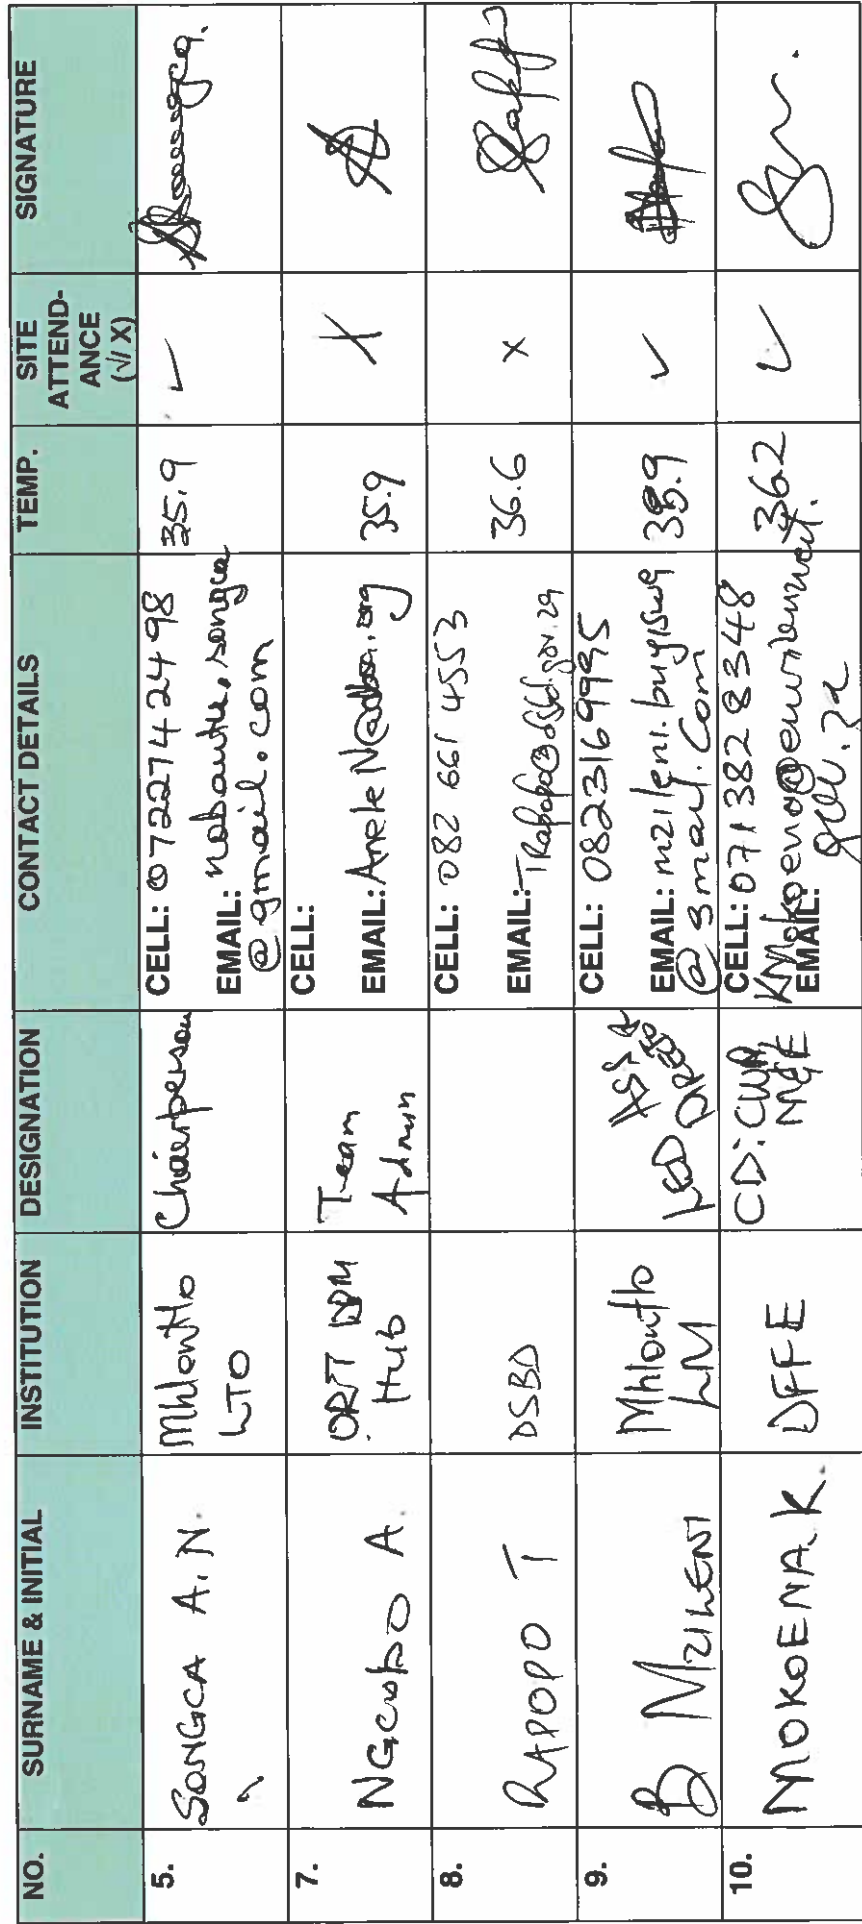 NO. SURNAME & INITIAL INSTITUTION DESIGNATION CONTACT DETAILS TEMP. SITE ATTEND-ANCE (√/ X) SIGNATURE
5. SONGCA A.N. Mhlontlo LTO Chairperson CELL: 0722742498 35.9 ✓
EMAIL: nobantu.songca
@gmail.com
7. NGcobo A. ORT DDM Hub Team Admin CELL: 35.9 X
EMAIL: AneleN@dbsa.org
8. RAPOPO T DSBD CELL: 082 661 4553 36.6 x
EMAIL: TRapopo@dsbd.gov.za
9. B MZILENI Mhlontlo LM LED ASS. DIRECTOR CELL: 0823169995 ✓
EMAIL: mzileni.buyiswa
@gmail.com
10. MOKOENA K. DFFE CD: CWM CELL: 071 382 8348 36.2 ✓
EMAIL: KMokoena@environment.
gov.za